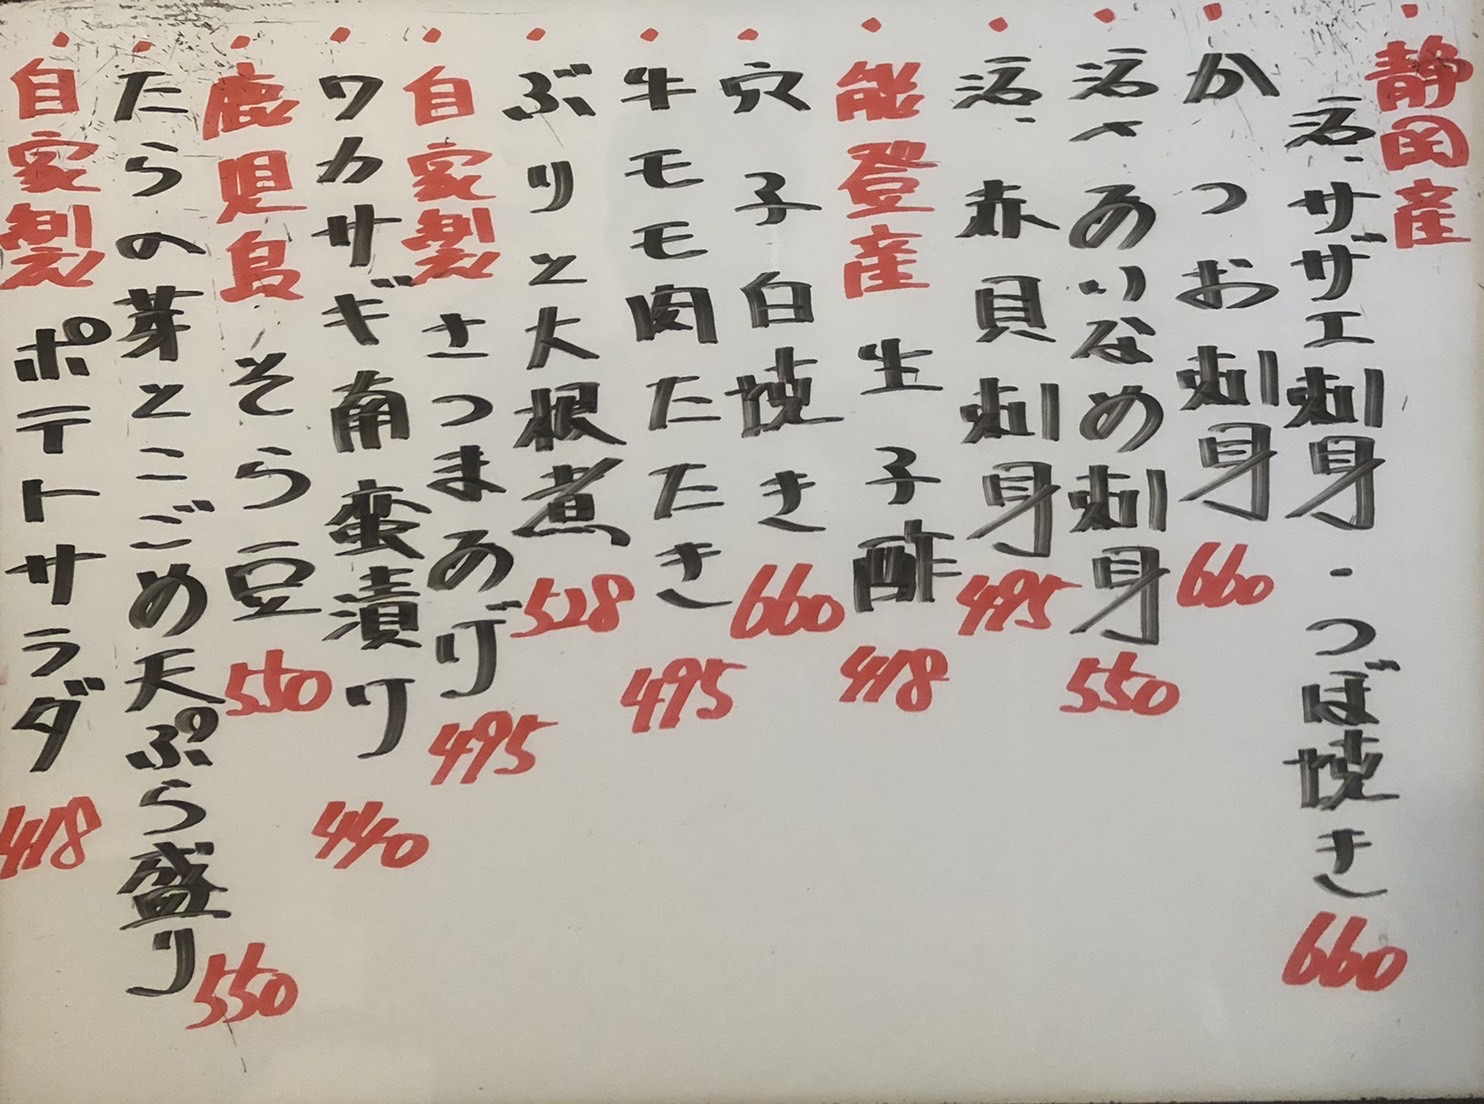 ・静岡産 活、サザエ刺身・つぼ焼き 660
・かつお刺身 660
・活〆あいなめ刺身 550
・活、赤貝刺身 495
・能登産 生子酢 418
・穴子白焼き 660
・牛モモ肉たたき 495
・ぶりと大根煮 528
・自家製さつまあげ 495
・ワカサギ南蛮漬け 440
・鹿児島、そら豆 550
・たらの芽とこごめ天ぷら盛り 550
・自家製 ポテトサラダ 418